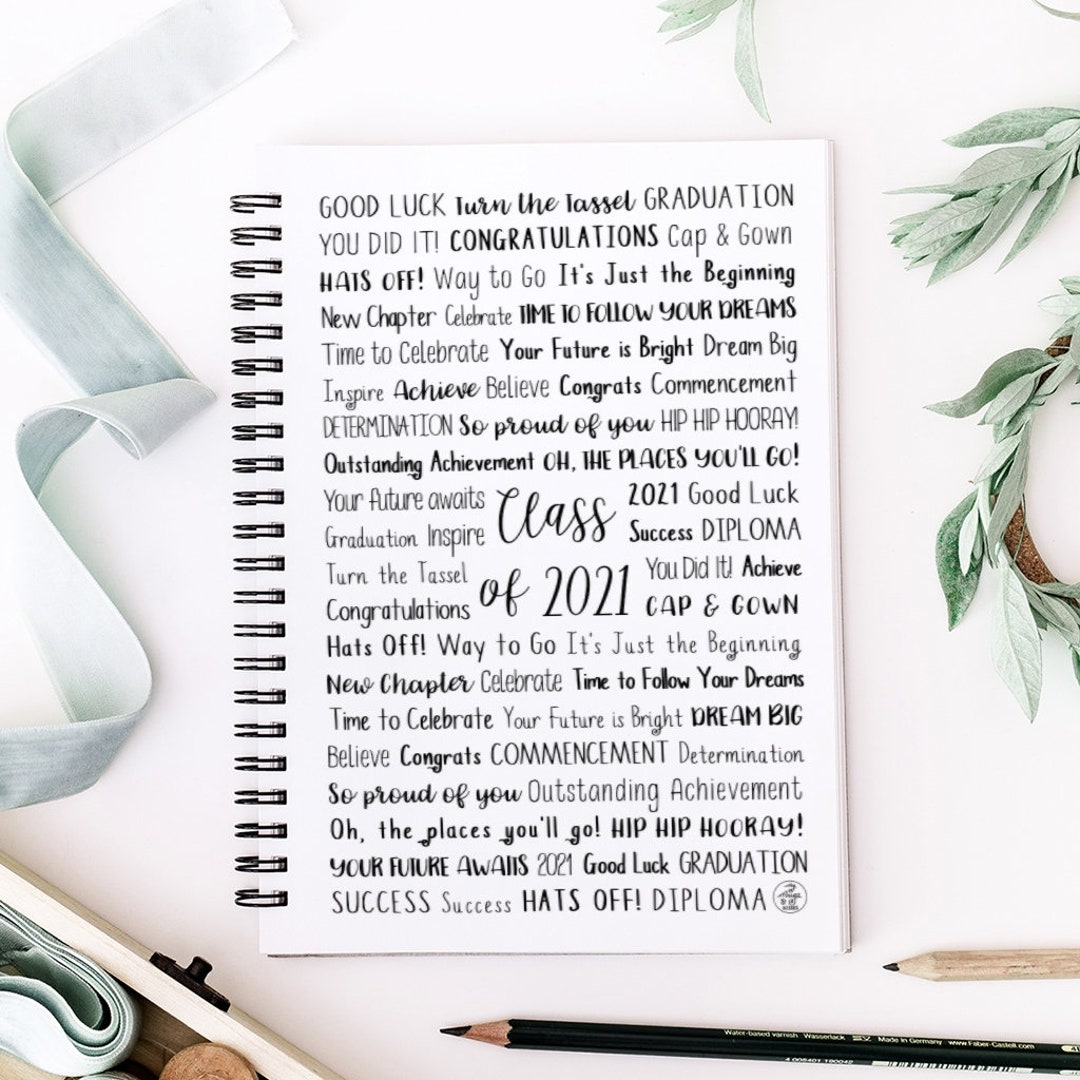 GOOD LUCK Turn the Tassel GRADUATION
YOU DID IT! CONGRATULATIONS Cap & Gown
HATS OFF! Way to Go It's Just the Beginning
New Chapter Celebrate TIME TO FOLLOW YOUR DREAMS
Time to Celebrate Your Future is Bright Dream Big
Inspire Achieve Believe Congrats Commencement
DETERMINATION So proud of you HIP HIP HOORAY!
Outstanding Achievement OH, THE PLACES YOU'LL GO!
Your future awaits
Graduation Inspire
Class
2021 Good Luck
Success DIPLOMA
Turn the Tassel
Congratulations
of 2021
You Did It! Achieve
CAP & GOWN
Hats Off! Way to Go It's Just the Beginning
New Chapter Celebrate Time to Follow Your Dreams
Time to Celebrate Your Future is Bright DREAM BIG
Believe Congrats COMMENCEMENT Determination
So proud of you Outstanding Achievement
Oh, the places you'll go! HIP HIP HOORAY!
YOUR FUTURE AWAITS 2021 Good Luck GRADUATION
SUCCESS Success HATS OFF! DIPLOMA
Water-based varnish Wasserlack Made in Germany www.Faber-Castell.com
4 005401 190042